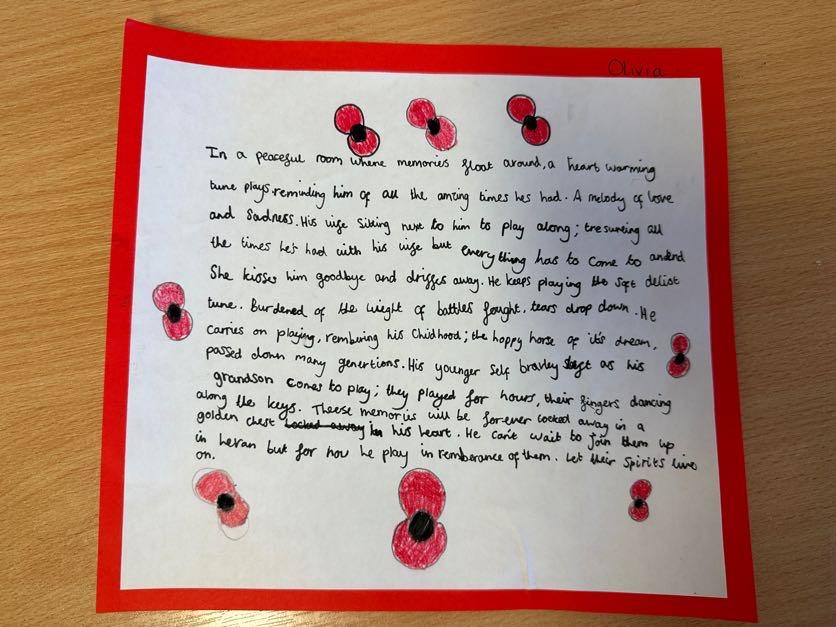 Olivia
In a peaceful room where memories float around, a heart warming
tune plays, reminding him of all the amzing times hes had. A melody of love
and sadness. His wife Sitking next to him to play along; tresureing all
the times he's had with his wife but everything has to come to anend
She kisses him goodbye and driffes away. He keeps playing the soft delict
tune. Burdened of the wieght of battles fought, tears drop down. He
carries on playing, remburing his Chidhood; the hoppy horse of it's dream,
passed down many genertions. His younger self bravley as his
grandson comes to play; they played for hours, their fingers dancing
along the keys. Theese memories will be for-ever locked away in a
golden chest locked away in his heart. He can't wait to join them up
in hevan but for now he play in remberance of them. Let their spirits live
on.